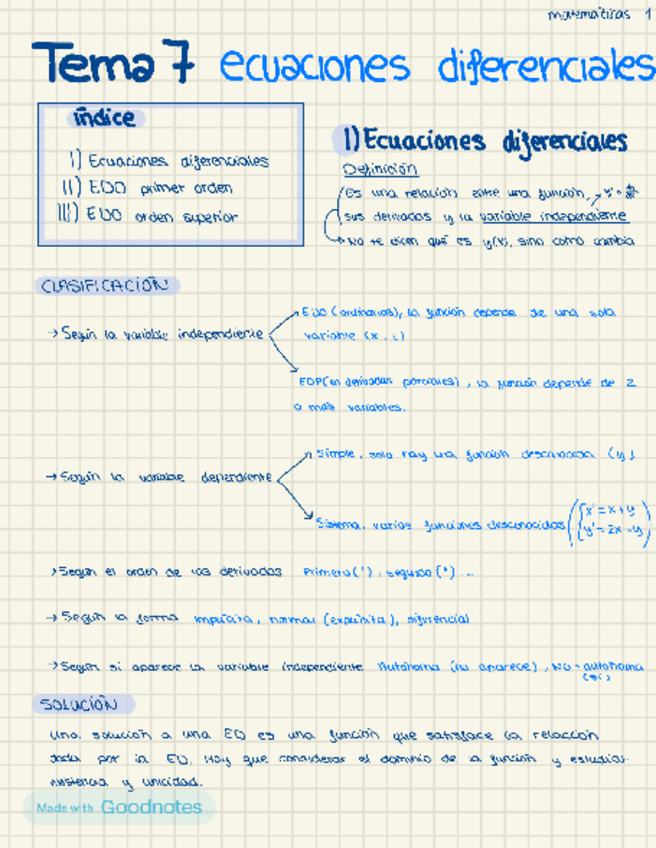 matemáticas 1
Tema 7 ecuaciones diferenciales
índice
I) Ecuaciones diferenciales
II) EDO primer orden
III) EDO orden superior
1) Ecuaciones diferenciales
Definición
Es una relación entre una función,
sus derivadas y la variable independiente
No te dicen qué es y(x), sino cómo cambia
CLASIFICACIÓN
→ Según la variable independiente
EDO (ordinarias), la función depende de una sola
variable
EDP (en derivadas parciales), la función depende de 2
o más variables.
→ Según la variable dependiente
Simple, solo hay una función desconocida (y)
Sistema, varias funciones desconocidas
x' = x + y
→ Según el orden de las derivadas Primero ('), segundo (") ...
→ Según la forma implícita, normal (explícita), diferencial
→ Según si aparece la variable independiente Autónoma (no aparece), No-autónoma
(sí)
SOLUCIÓN
Una solución a una ED es una función que satisface la relación
dada por la ED. Hay que considerar el dominio de la función y estudiar
existencia y unicidad.
Made with Goodnotes